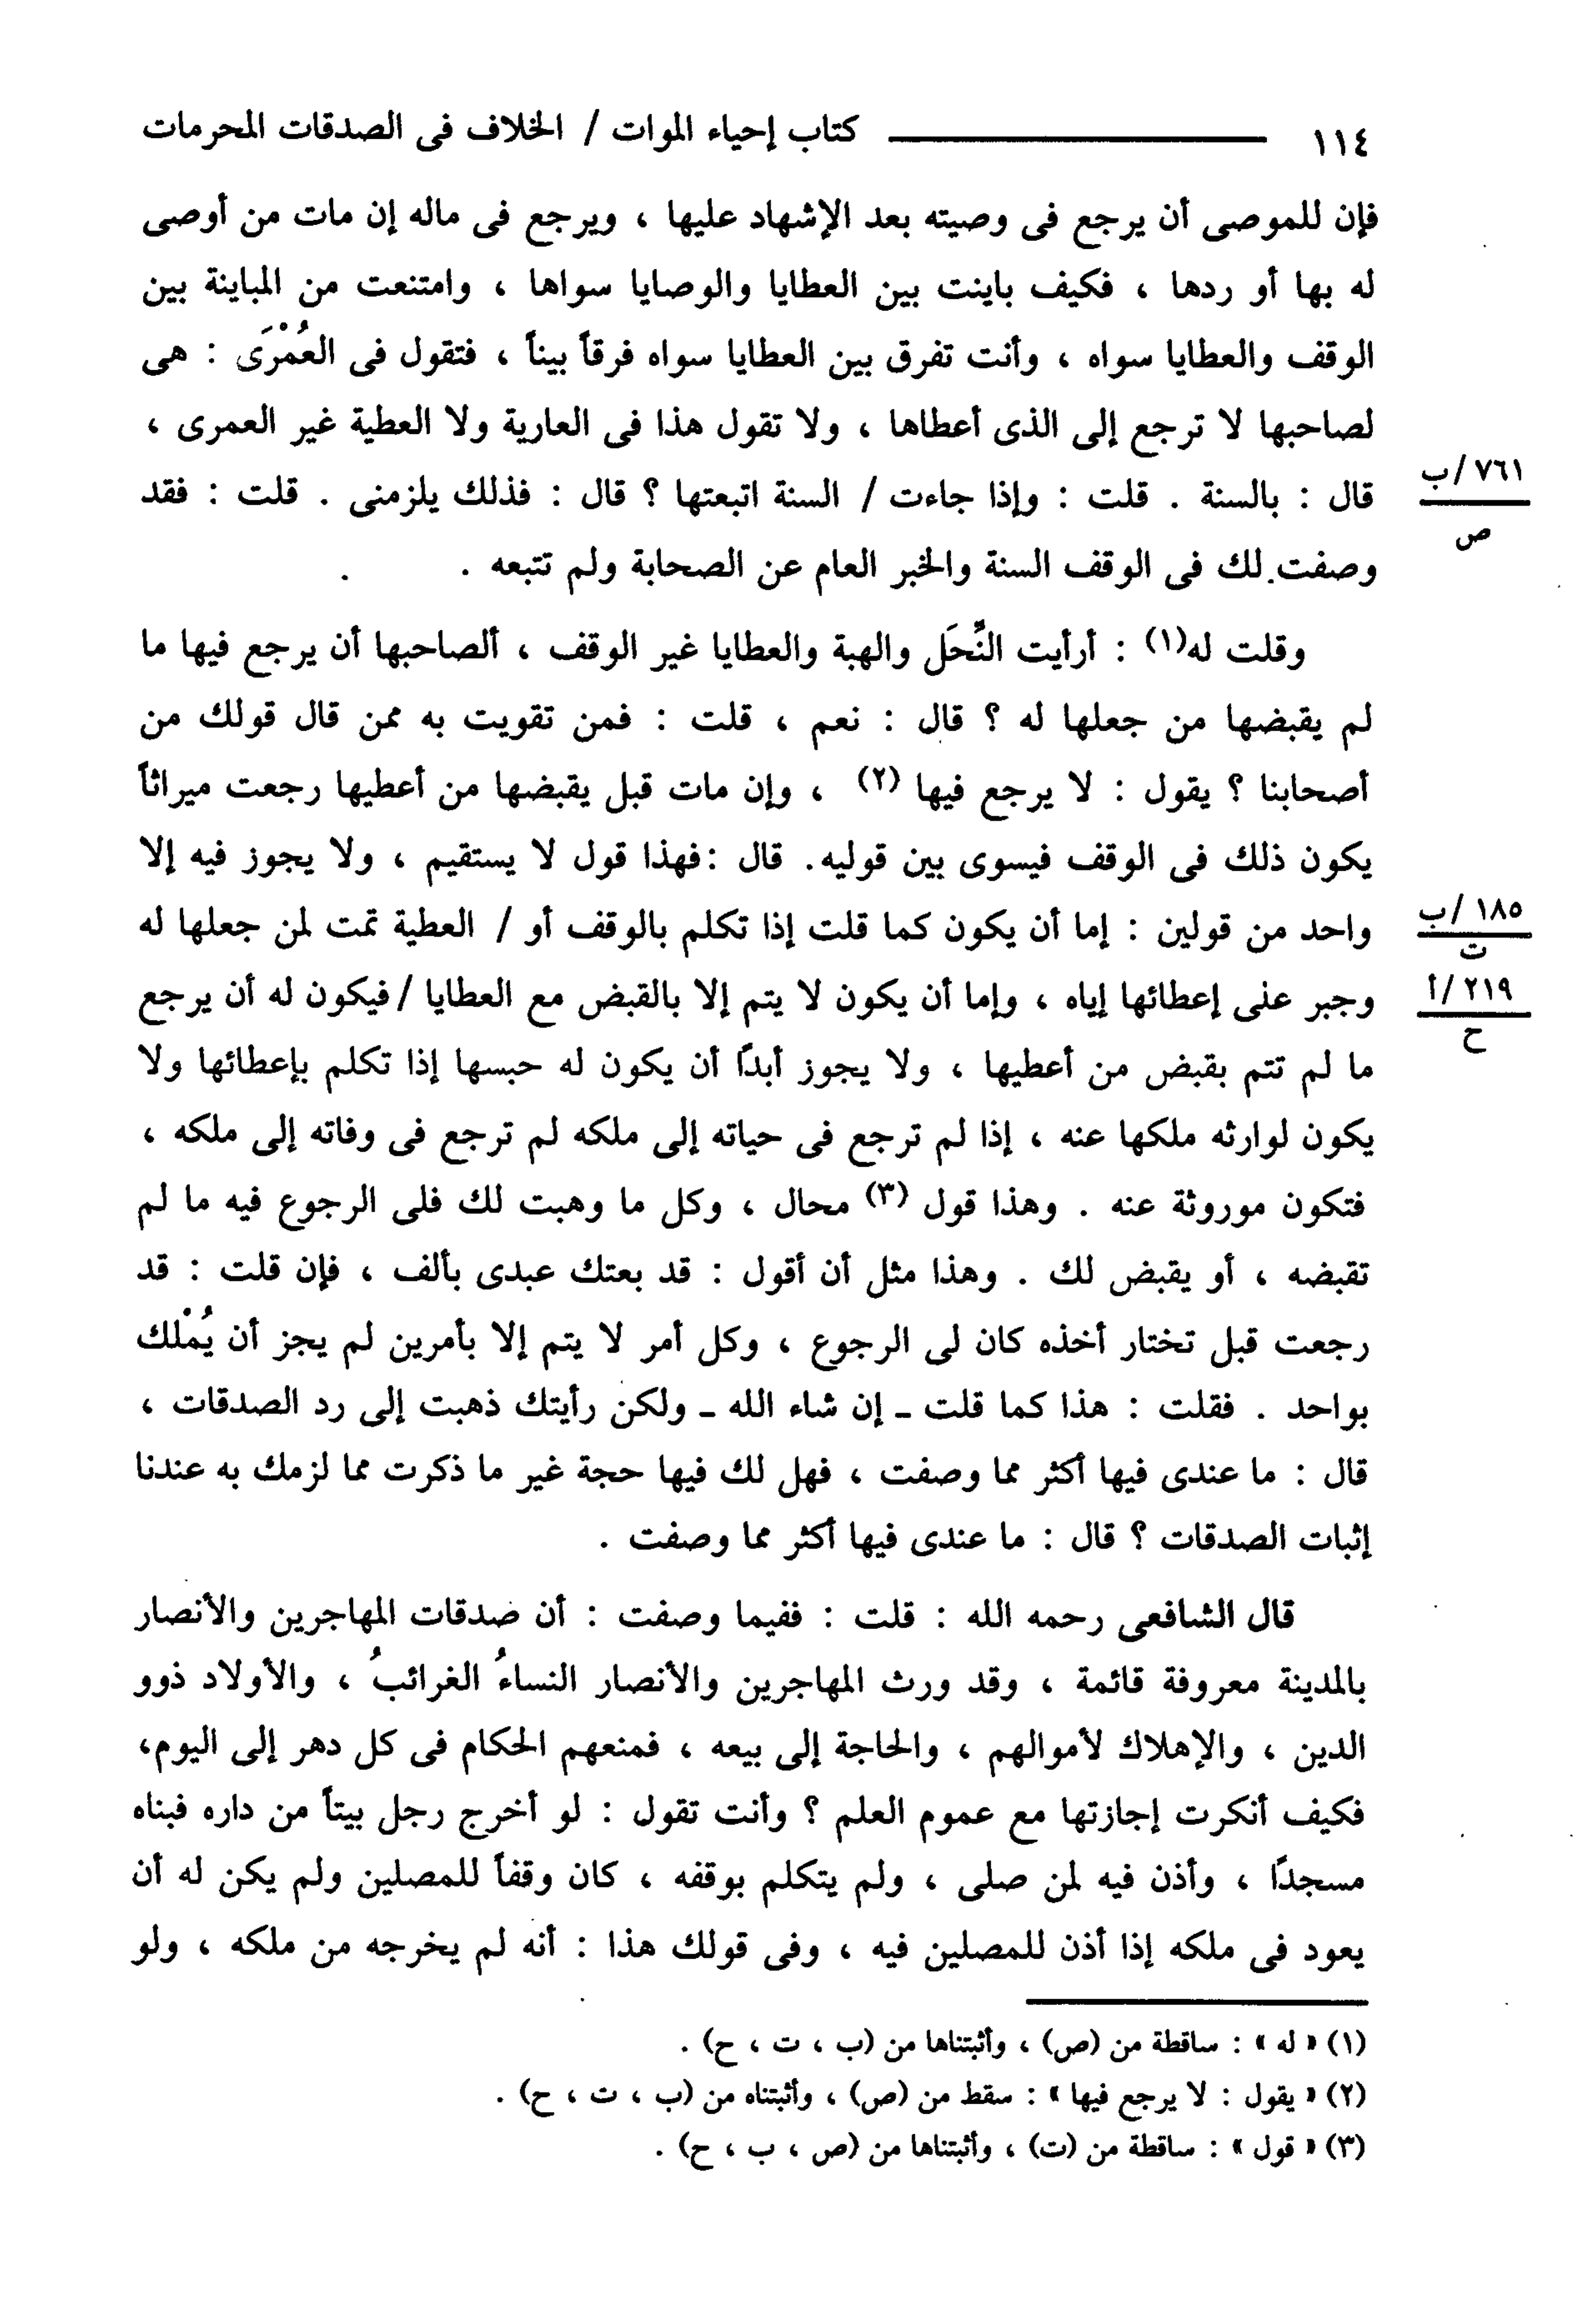 ١١٤ ــــــــــــــــــــ كتاب إحياء الموات / الخلاف فى الصدقات المحرمات
فإن للموصى أن يرجع فى وصيته بعد الإشهاد عليها ، ويرجع فى ماله إن مات من أوصى
له بها أو ردها ، فكيف باينت بين العطايا والوصايا سواها ، وامتنعت من المباينة بين
الوقف والعطايا سواه ، وأنت تفرق بين العطايا سواه فرقاً بيناً ، فتقول فى العُمْرَى : هى
لصاحبها لا ترجع إلى الذى أعطاها ، ولا تقول هذا فى العارية ولا العطية غير العمرى ،
قال : بالسنة . قلت : وإذا جاءت / السنة اتبعتها ؟ قال : فذلك يلزمنى . قلت : فقد
٧٦١/ب
ص
وصفت لك فى الوقف السنة والخبر العام عن الصحابة ولم تتبعه .
وقلت له(١) : أرأيت النِّحَل والهبة والعطايا غير الوقف ، ألصاحبها أن يرجع فيها ما
لم يقبضها من جعلها له ؟ قال : نعم ، قلت : فمن تقويت به ممن قال قولك من
أصحابنا ؟ يقول : لا يرجع فيها (٢) ، وإن مات قبل يقبضها من أعطيها رجعت ميراثاً
يكون ذلك فى الوقف فيسوى بين قوليه. قال :فهذا قول لا يستقيم ، ولا يجوز فيه إلا
واحد من قولين : إما أن يكون كما قلت إذا تكلم بالوقف أو / العطية تمت لمن جعلها له
١٨٥/ب
ت
وجبر على إعطائها إياه ، وإما أن يكون لا يتم إلا بالقبض مع العطايا /فيكون له أن يرجع
٢١٩/أ
ح
ما لم تتم بقبض من أعطيها ، ولا يجوز أبداً أن يكون له حبسها إذا تكلم بإعطائها ولا
يكون لوارثه ملكها عنه ، إذا لم ترجع فى حياته إلى ملكه لم ترجع فى وفاته إلى ملكه ،
فتكون موروثة عنه . وهذا قول (٣) محال ، وكل ما وهبت لك فلى الرجوع فيه ما لم
تقبضه ، أو يقبض لك . وهذا مثل أن أقول : قد بعتك عبدى بألف ، فإن قلت : قد
رجعت قبل تختار أخذه كان لى الرجوع ، وكل أمر لا يتم إلا بأمرين لم يجز أن يُمْلك
بواحد . فقلت : هذا كما قلت ـ إن شاء الله ـ ولكن رأيتك ذهبت إلى رد الصدقات ،
قال : ما عندى فيها أكثر مما وصفت ، فهل لك فيها حجة غير ما ذكرت مما لزمك به عندنا
إثبات الصدقات ؟ قال : ما عندى فيها أكثر مما وصفت .
قال الشافعى رحمه الله : قلت : ففيما وصفت : أن صدقات المهاجرين والأنصار
بالمدينة معروفة قائمة ، وقد ورث المهاجرين والأنصار النساءُ الغرائبُ ، والأولاد ذوو
الدين ، والإهلاك لأموالهم ، والحاجة إلى بيعه ، فمنعهم الحكام فى كل دهر إلى اليوم،
فكيف أنكرت إجازتها مع عموم العلم ؟ وأنت تقول : لو أخرج رجل بيتاً من داره فبناه
مسجداً ، وأذن فيه لمن صلى ، ولم يتكلم بوقفه ، كان وقفاً للمصلين ولم يكن له أن
يعود فى ملكه إذا أذن للمصلين فيه ، وفى قولك هذا : أنه لم يخرجه من ملكه ، ولو
(١) « له » : ساقطة من (ص) ، وأثبتناها من (ب ، ت ، ح) .
(٢) « يقول : لا يرجع فيها » : سقط من (ص) ، وأثبتناه من (ب ، ت ، ح) .
(٣) « قول » : ساقطة من (ت) ، وأثبتناها من (ص ، ب ، ح) .